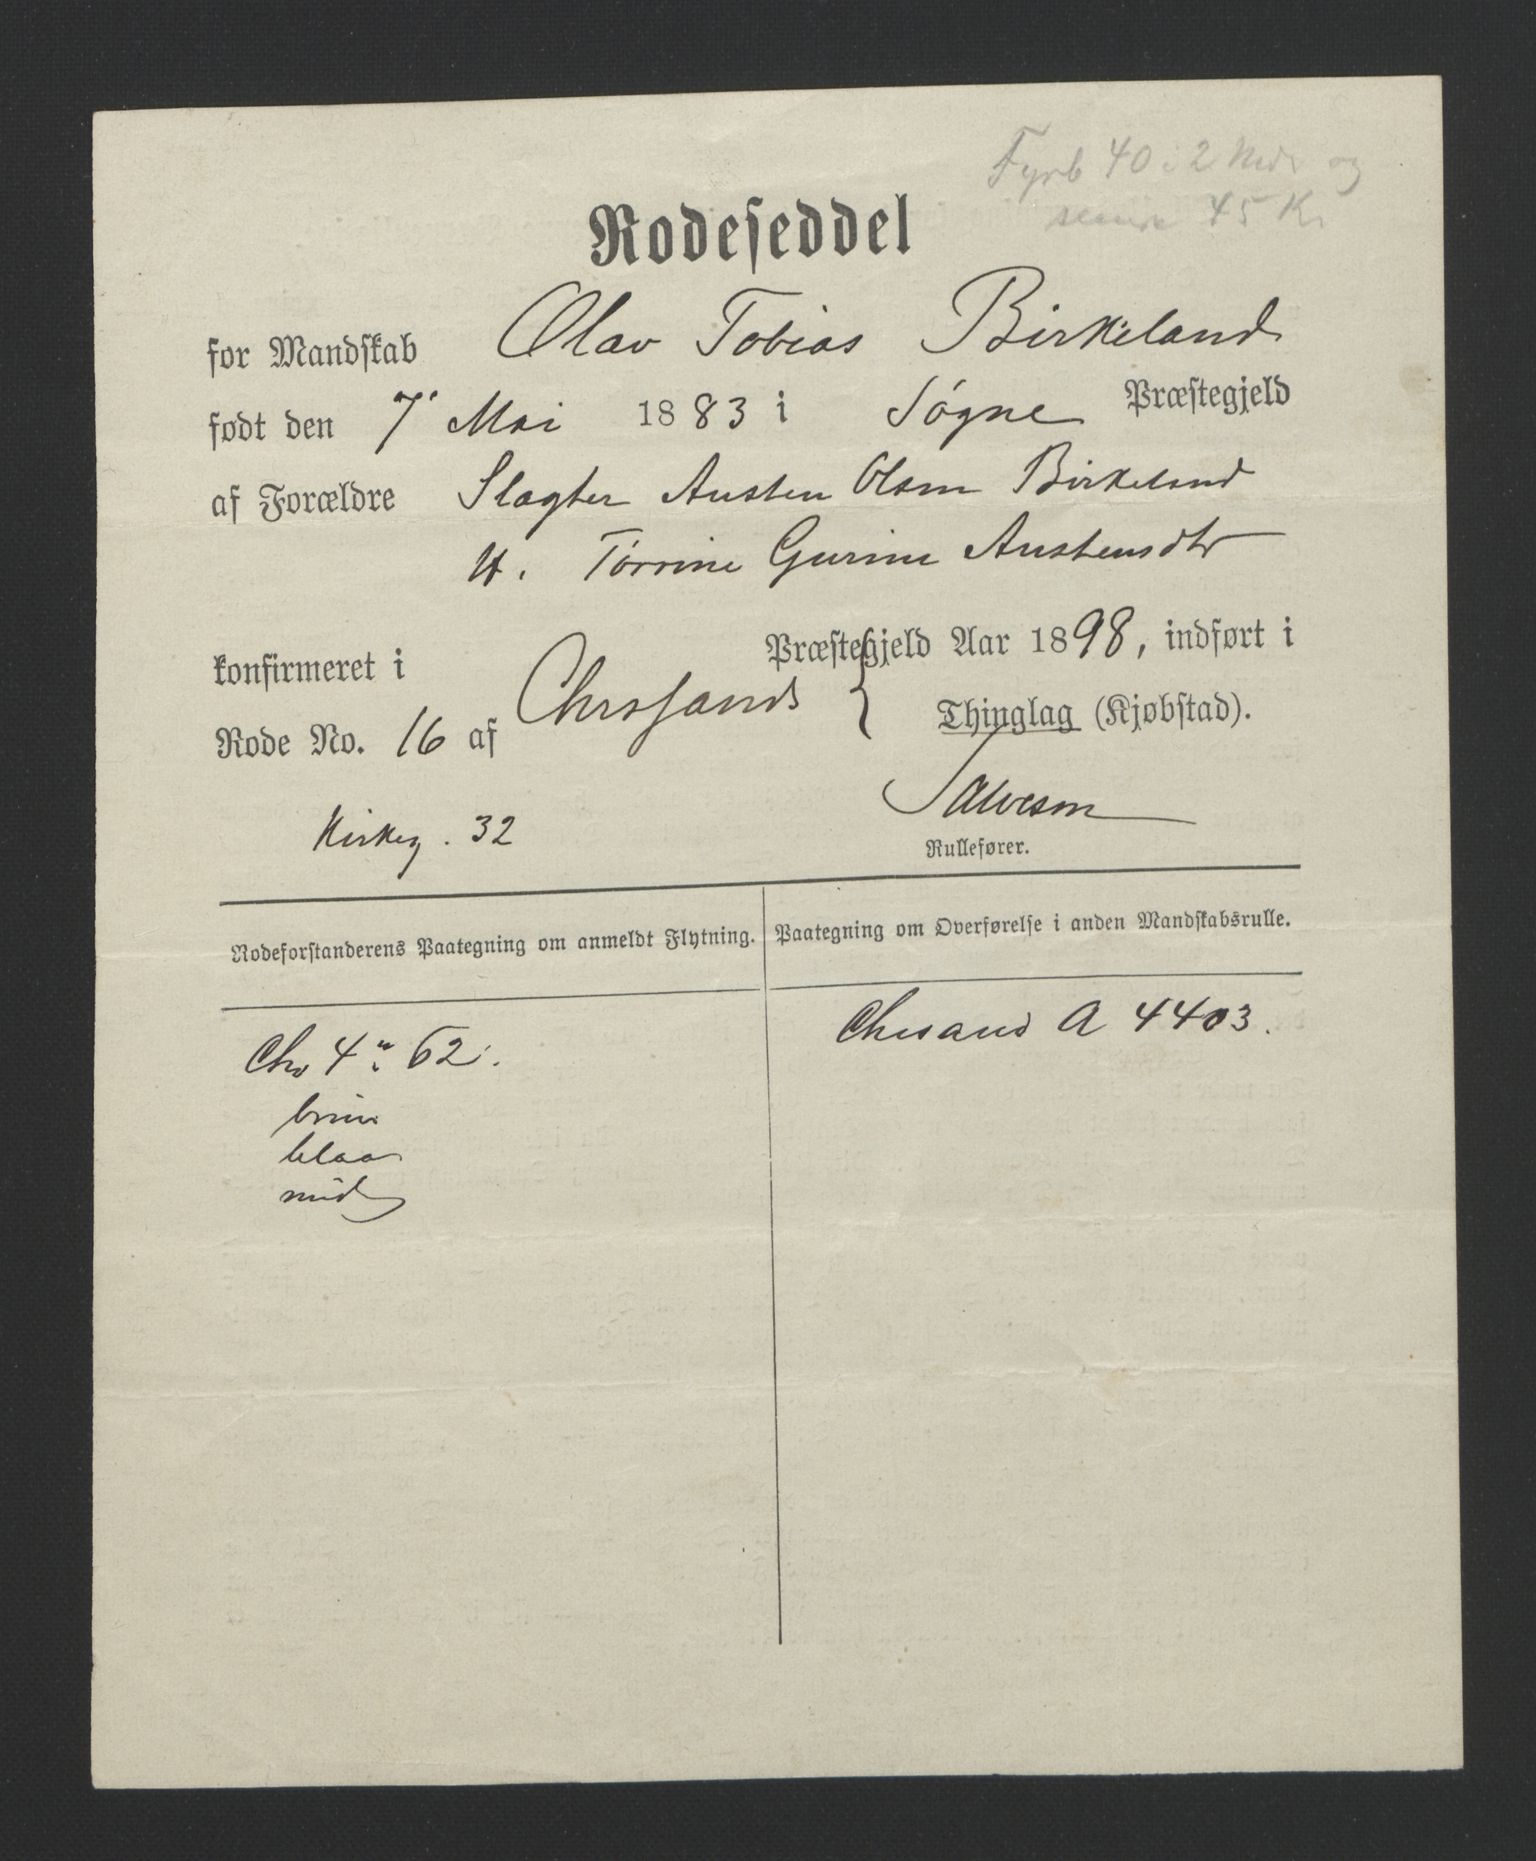 Fyrb 40 i 2 Mdr og
senere 45 Kr
Rodeseddel
for Mandskab Olav Tobias Birkeland
født den 7' Mai 1883 i Søgne Præstegjeld
af Forældre Slagter Austen Olsen Birkeland
H. Torrine Gurine Austensdtr
konfirmeret i Chrssands Præstegjeld Aar 1898, indført i
Rode No. 16 af Thinglag (Kjøbstad).
Kirkeg. 32 Salvesen
Rullefører.
Rodeforstanderens Paategning om anmeldt Flytning. Paategning om Overførelse i anden Mandskabsrulle.
Chrsand A 4403.
Chr 4" 62.
brun
blaa
mid